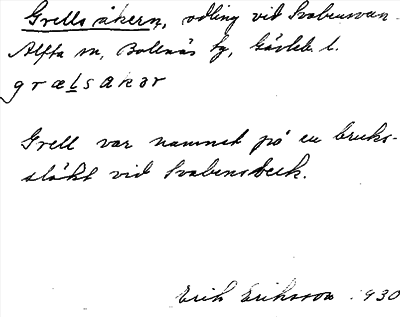 Grells åkern, odling vid Svabensver-
Alfta sn, Bollnäs tg, Gävleb. l.
grælsakər
Grell var namnet på en bruks-
släkt vid Svabensverk.
Erik Eriksson 1930